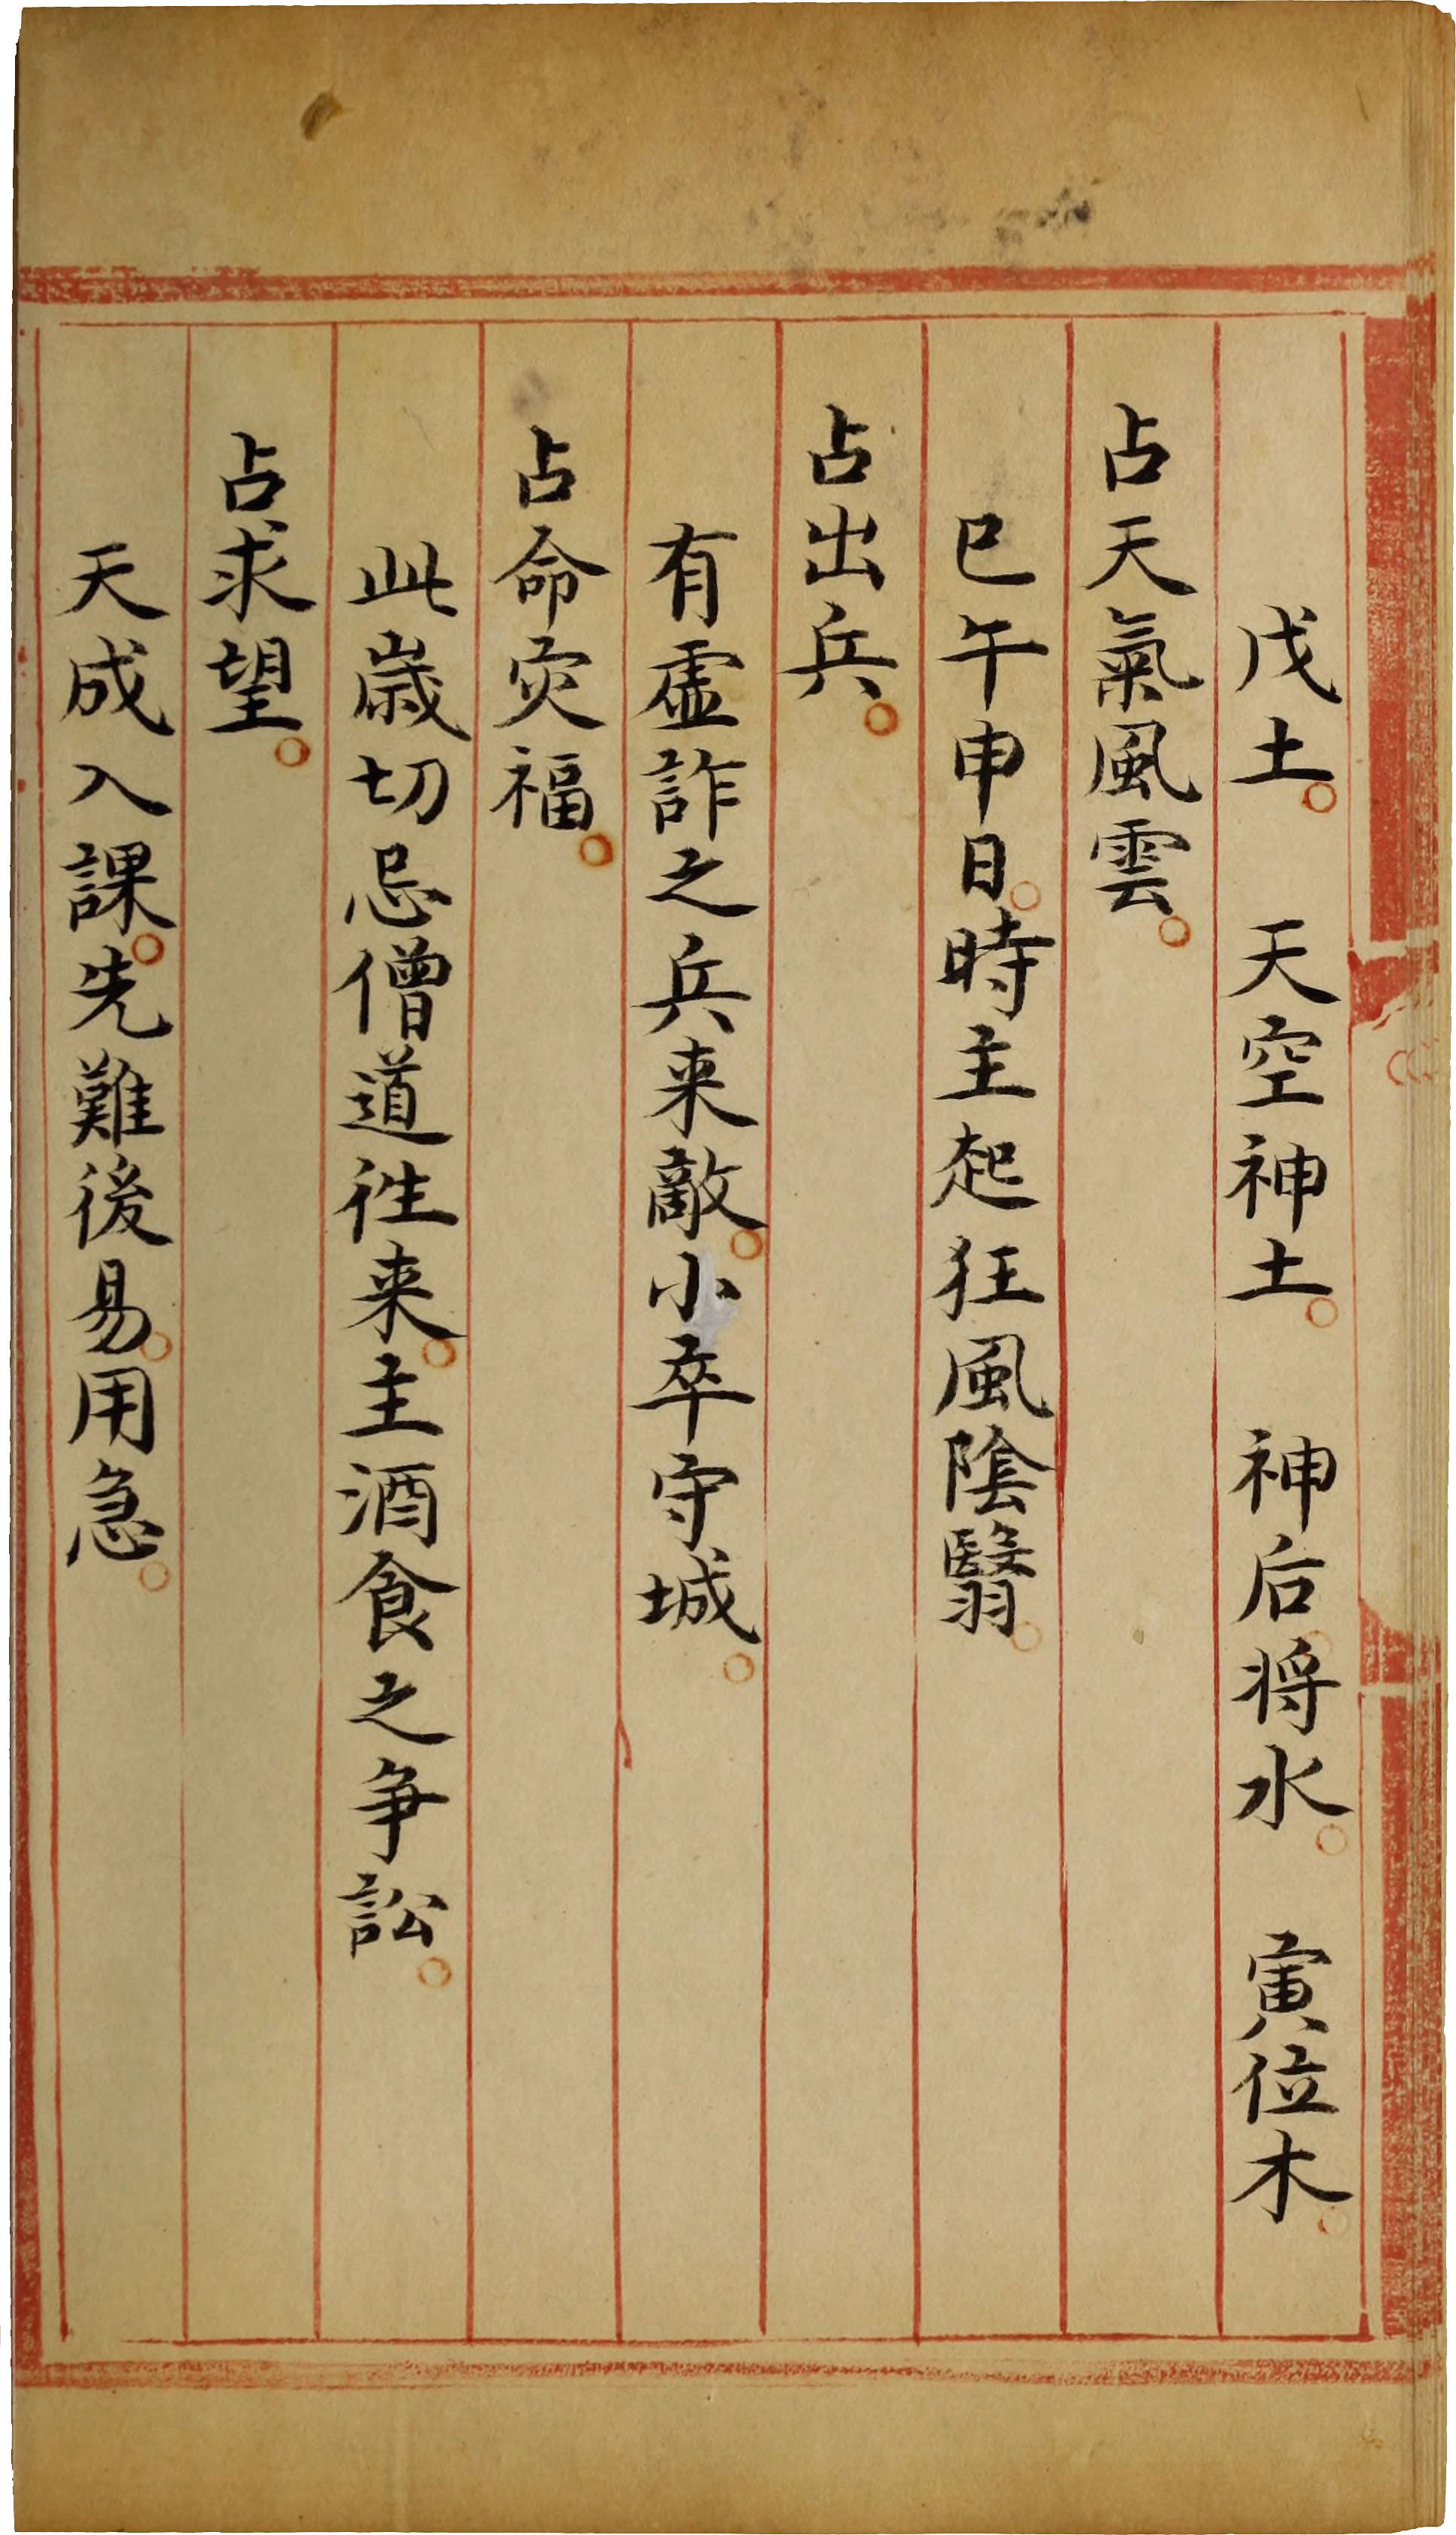 戊土。　天空神土。　神后将水。　寅位木。
占天氣風雲。
巳午申日。時主起狂風陰翳。
占出兵。
有虛詐之兵来敵。小卒守城。
占命灾福。
此歲切忌僧道徃来。主酒食之争訟。
占求望。
天成入課。先難後易。用急。